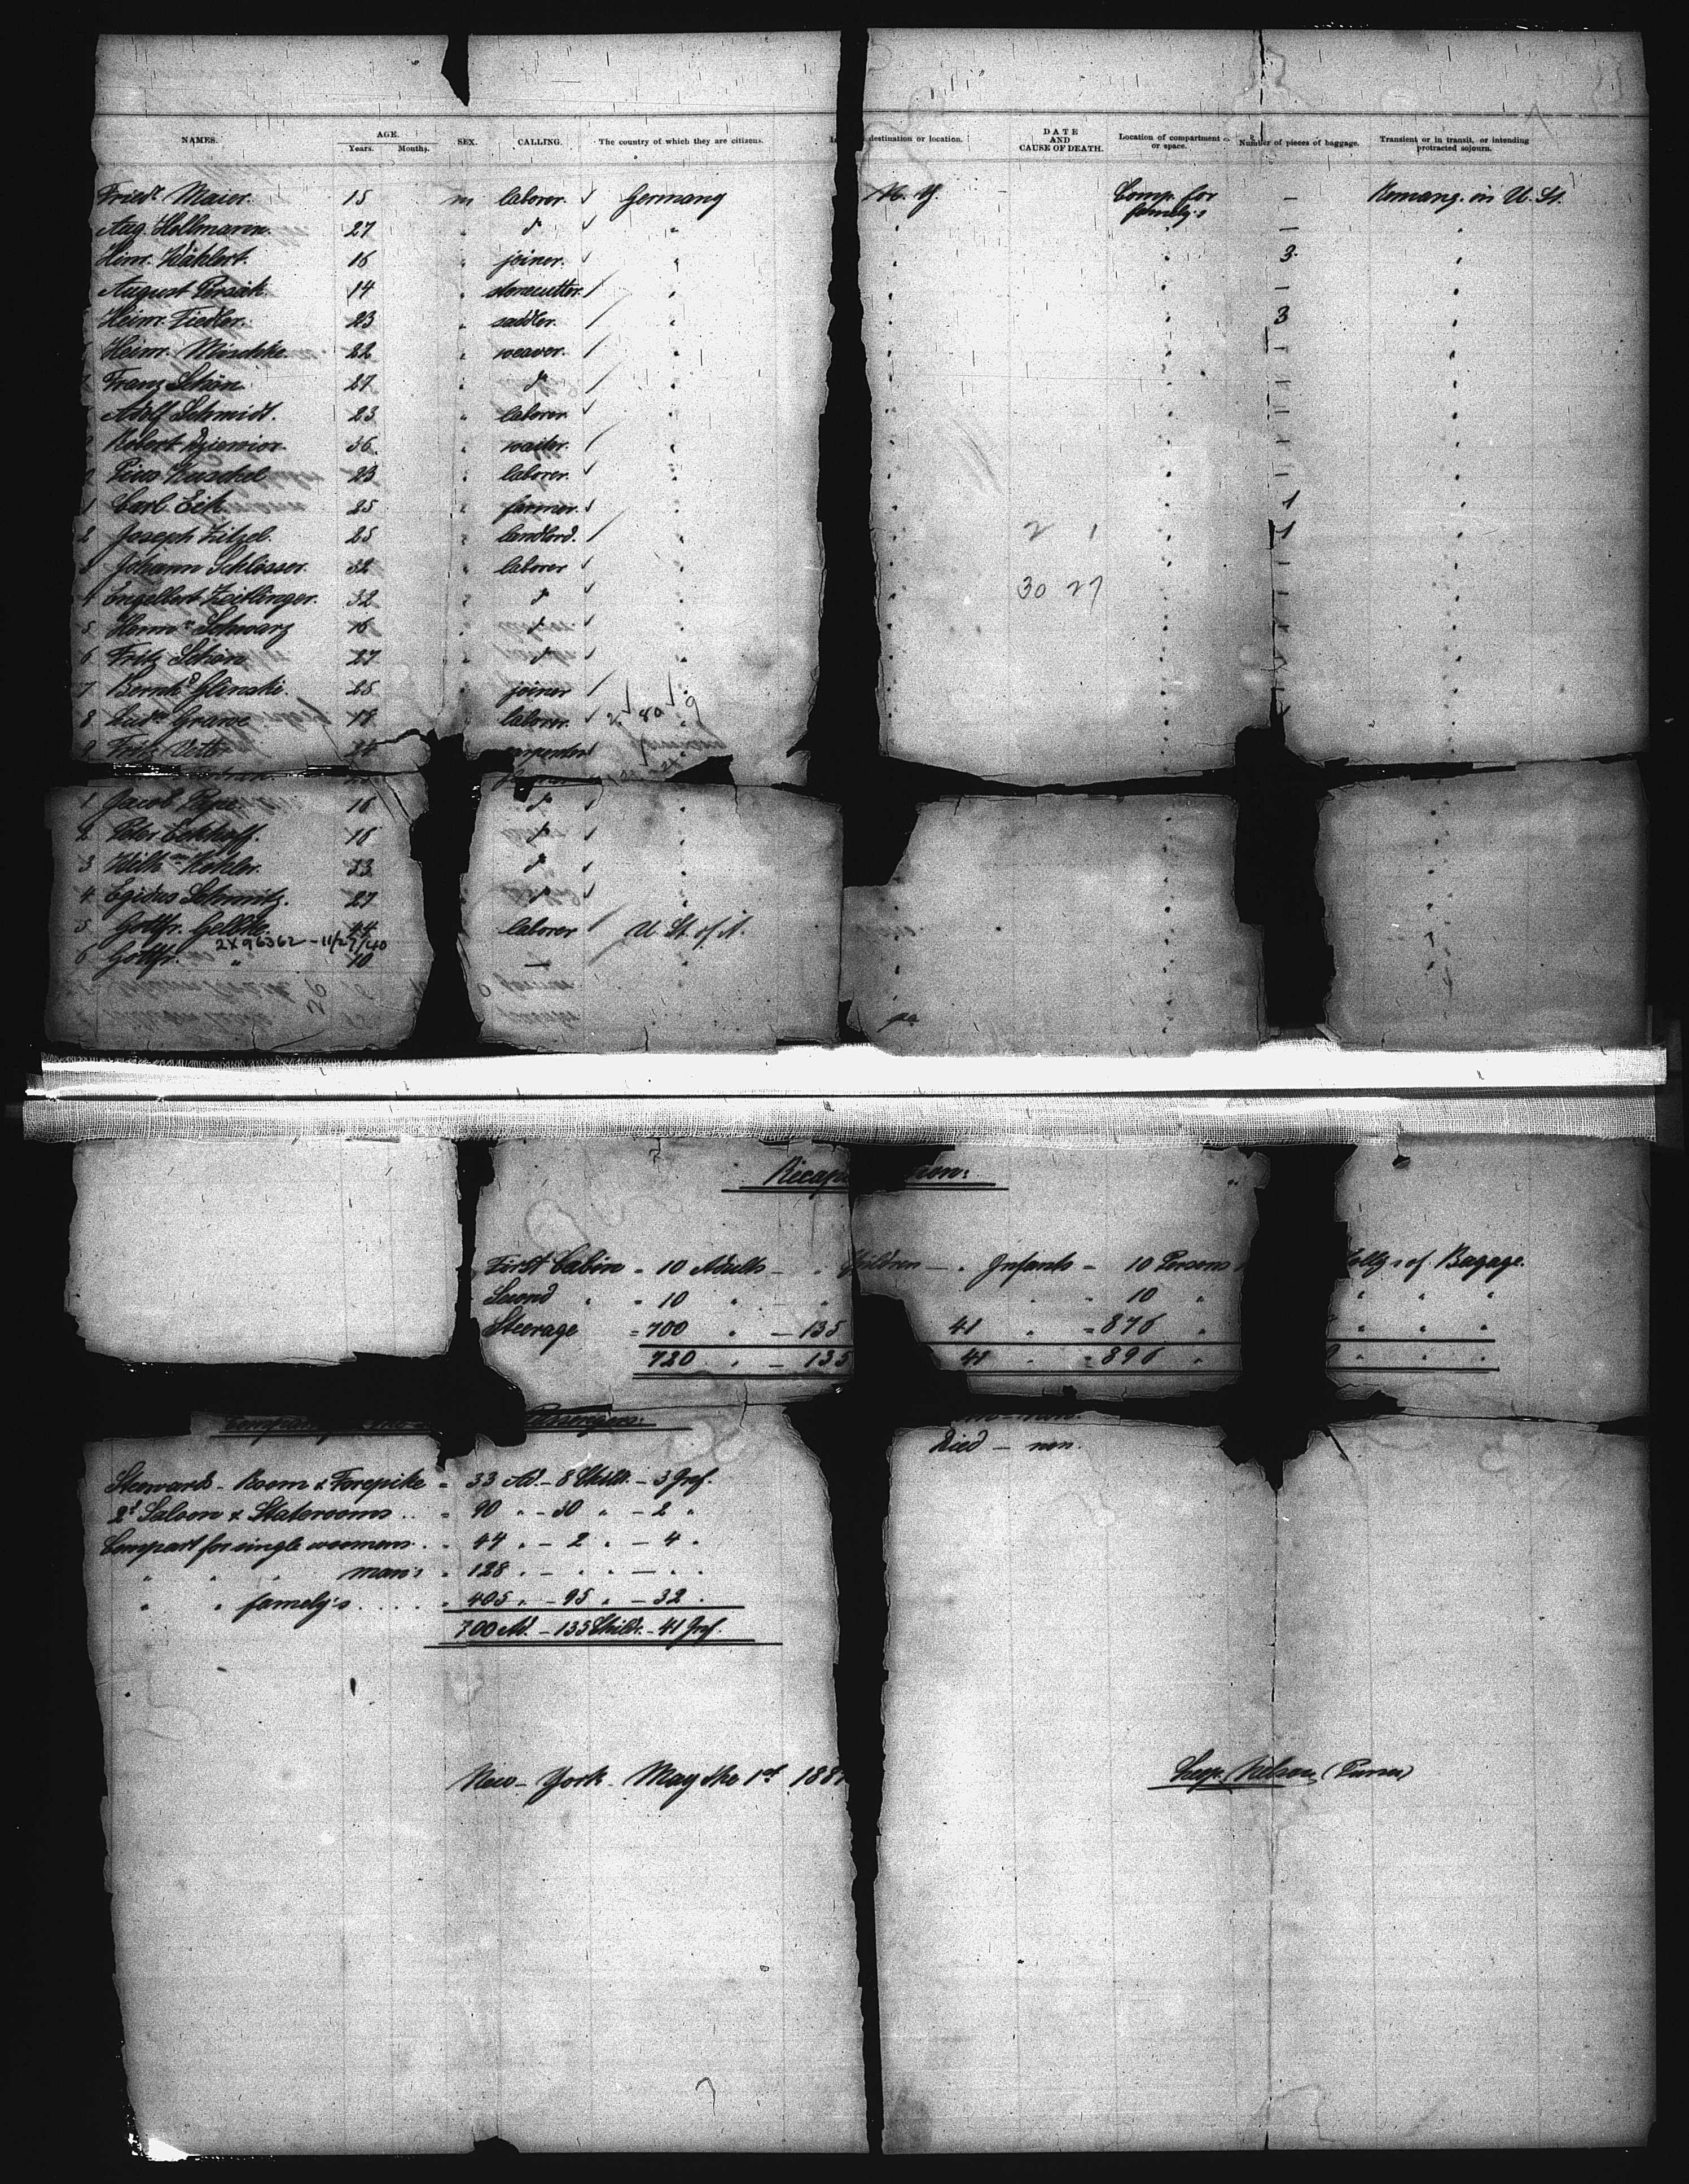 NAMES. AGE. Years. Months. SEX. CALLING. The country of which they are citizens. destination or location. DATE AND CAUSE OF DEATH. Location of compartment or space. Number of pieces of baggage. Transient or in transit, or intending protracted sojourn.
Friedr. Maier. 15 m laborer. Germany N. Y. Comp. for family's — Remang. in U. St.
Aug. Hellmann. 27 " do " " " — "
Heinr. Wählert. 16 " joiner. " " " 3. "
August 14 " stonecutter. " " " — "
Heinr. Fiedler. 23 " saddler. " " " 3 "
Heinr. Mischke. 22 " weaver. " " " — "
7 Franz Schön. 27 " do " " " — "
Adolf Schmidt. 23 " laborer " " " — "
Robert 36 " waiter. " " " — "
Pius Kuschel 23 " laborer. " " " — "
1 Carl Eick 25 " farmer. " " " 1 "
2 Joseph Zitzel. 25 " landlord. " " 2 1 " 1 "
3 Johann Schlösser. 32 " laborer " " " — "
4 Engelbert Zeitlinger. 32 " do " " 30 27 " — "
5 Herm. Schwarz 16 " do " " " — "
6 Fritz Schön 27 " do " " " — "
7 Bernhd. Glinski. 25 " joiner " " " "
8 Ludw. Grawe 18 " laborer. " " " "
9 Fritz 24 carpenter " " "
1 Jacob Pape 16 do " " "
2 Peter Eckhoff. 18 do " " "
3 Wilhm. Köhler. 33 do " " "
4 Egidus Schmitz. 27 do " " "
5 Gottfr. Gellike. 44 laborer U. St. of A. " "
2X96362 - 11/27/40
6 Gottfr. " 10 — " " " "
Recap ion:
First Cabin = 10 Adults — " Children — " Infants = 10 Persons of Bagage.
Second " = 10 " — " " = 10 " " " "
Steerage = 700 " — 135 41 " = 876 " " " "
720 " — 135 41 " = 896 " 9 " " "
Passengers:
Died — non.
Stewards - Room & Forepike = 33 Ad. — 8 Childr. — 3 Inf.
2d Saloon & Staterooms .. = 90 " — 30 " — 2 "
Compart for single woomens . . " 44 " — 2 " — 4 "
" " " man's " 128 " — " " — " "
" " famely's . . . . " 405 " — 95 " — 32 "
700 Ad. — 135 Childr. — 41 Inf.
New-York. May the 1st 188
Nielsen (Purser)